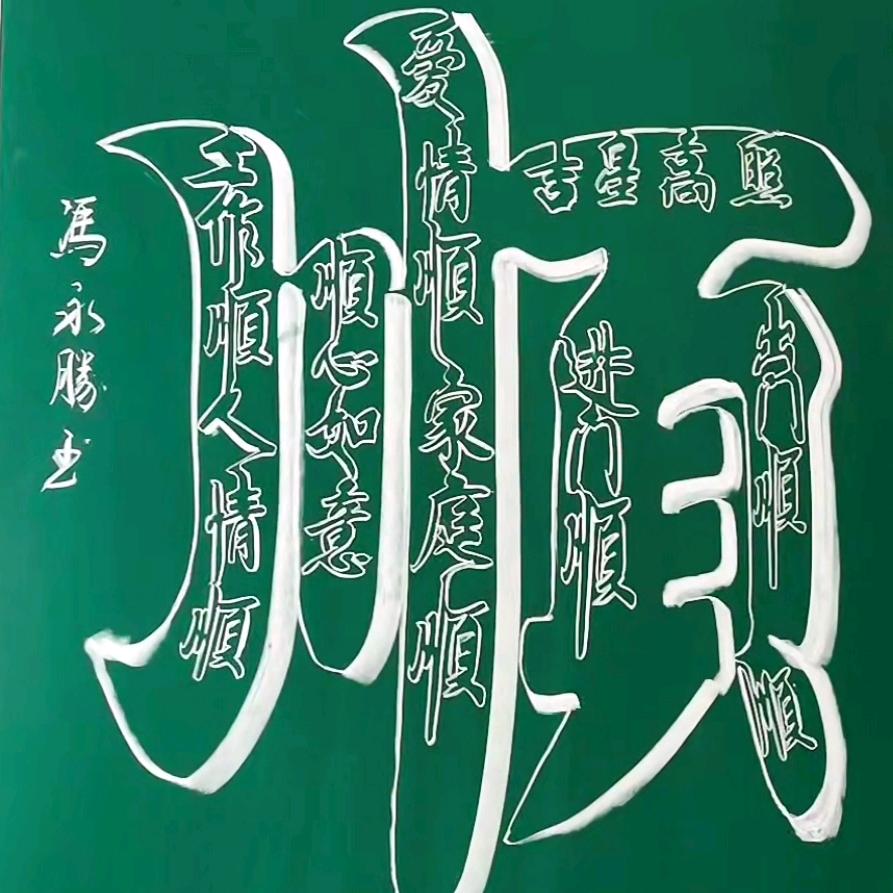 順
工作順人情順
順心如意
愛情順家庭順
吉星高照
进门順
出门順
順
馮永勝书